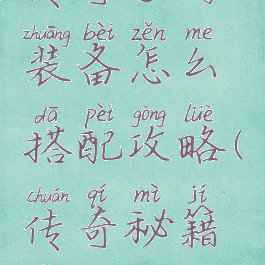 zhuāng bèi zěn me
装备怎么
dā pèi gōng lüè
搭配攻略(
chuán qí mì jí
传奇秘籍